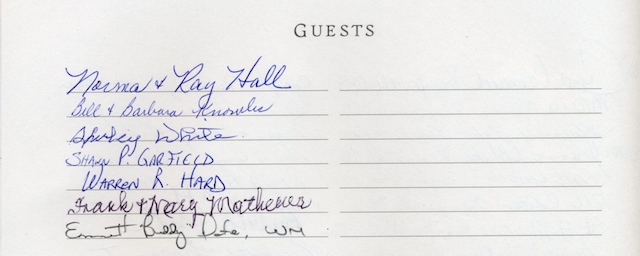 GUESTS
Norma & Ray Hall
Bill & Barbara Knowles
Shirley White
SHAWN P. GARFIELD
WARREN R. HARD
Frank & Mary Mathews
Emmett "Billy"